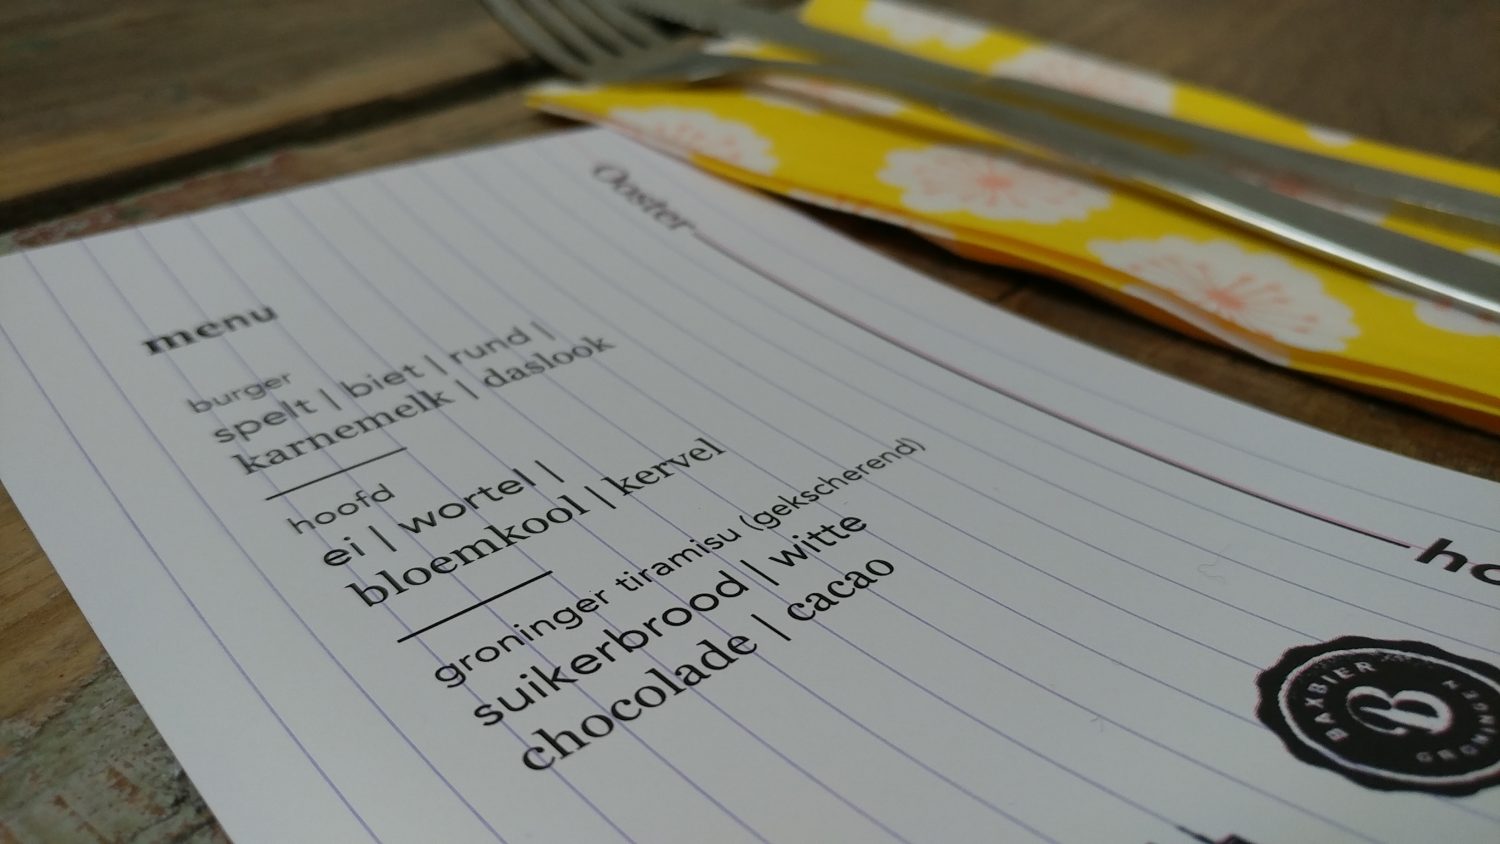 Ooster
menu
burger
spelt | biet | rund |
karnemelk | daslook
hoofd
ei | wortel |
bloemkool | kervel
groninger tiramisu (gekscherend)
suikerbrood | witte
chocolade | cacao
BAXBIER
B
GRONINGEN